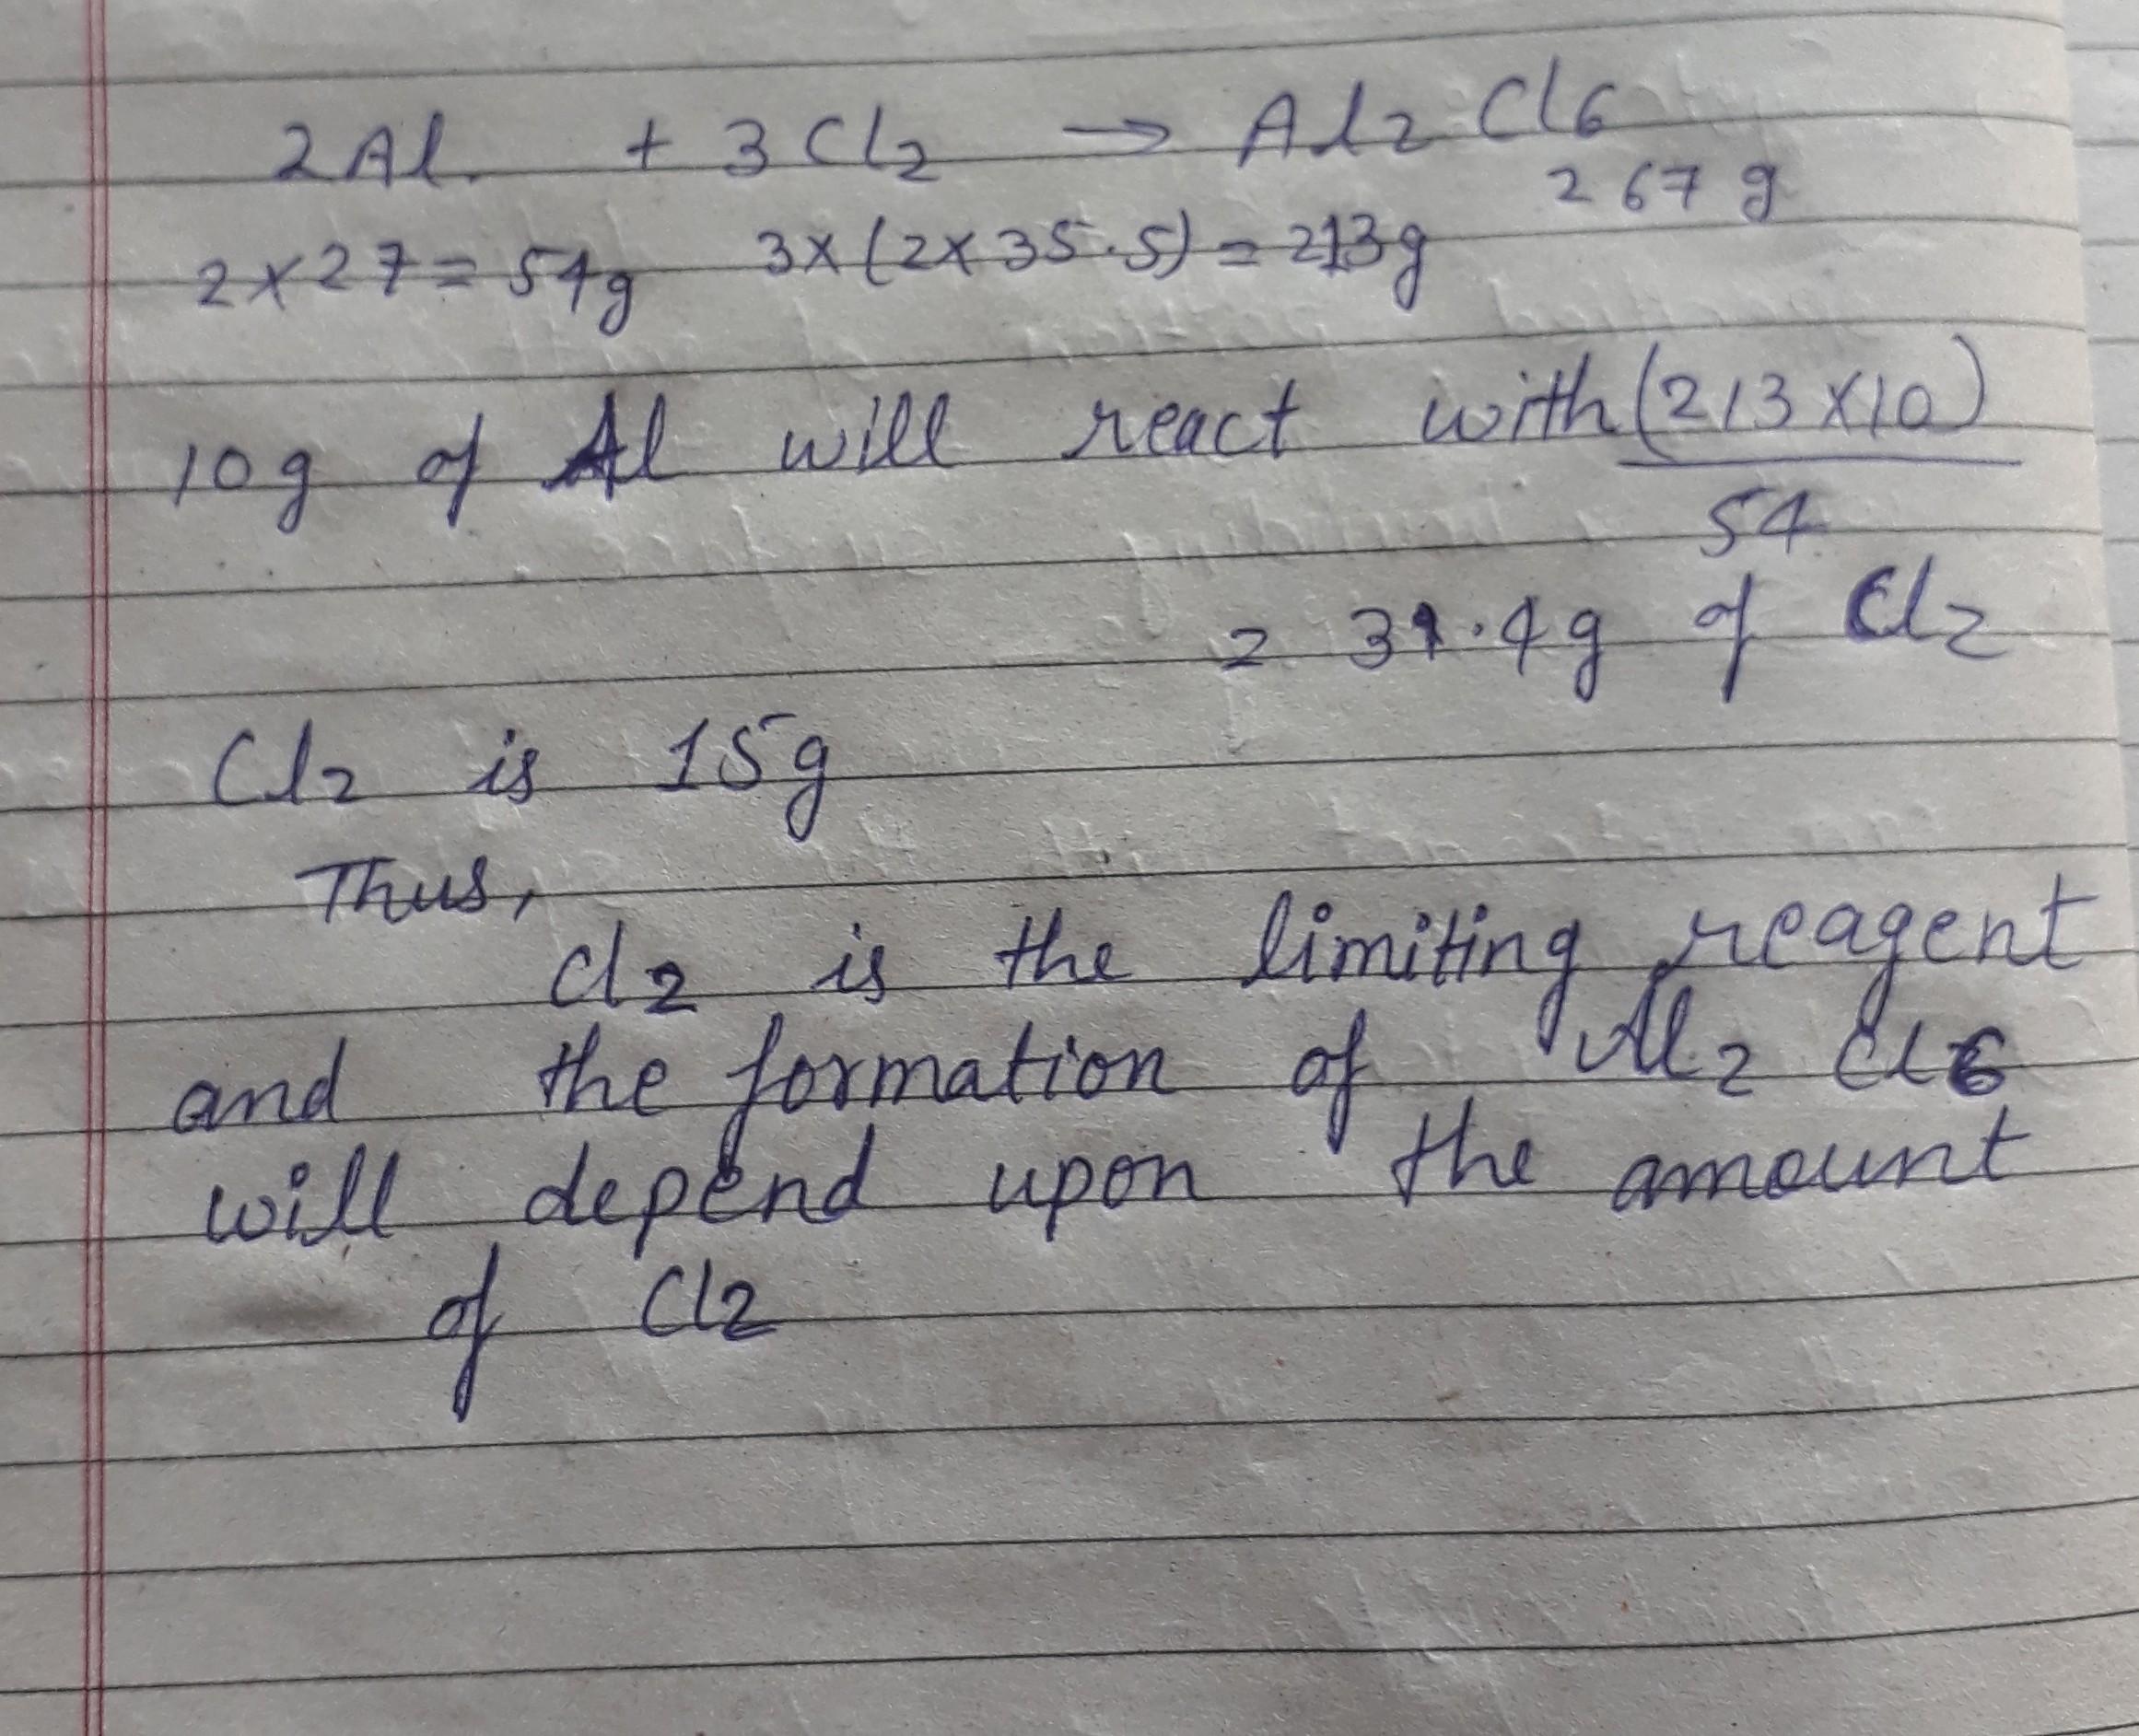 2Al. + 3Cl2 → Al2Cl6
267 g
2×27=54g 3×(2×35.5)=213g
10g of Al will react with (213×10)
54
= 39.4g of Cl2
Cl2 is 15g
Thus,
Cl2 is the limiting reagent
and the formation of Al2Cl6
will depend upon the amount
of Cl2